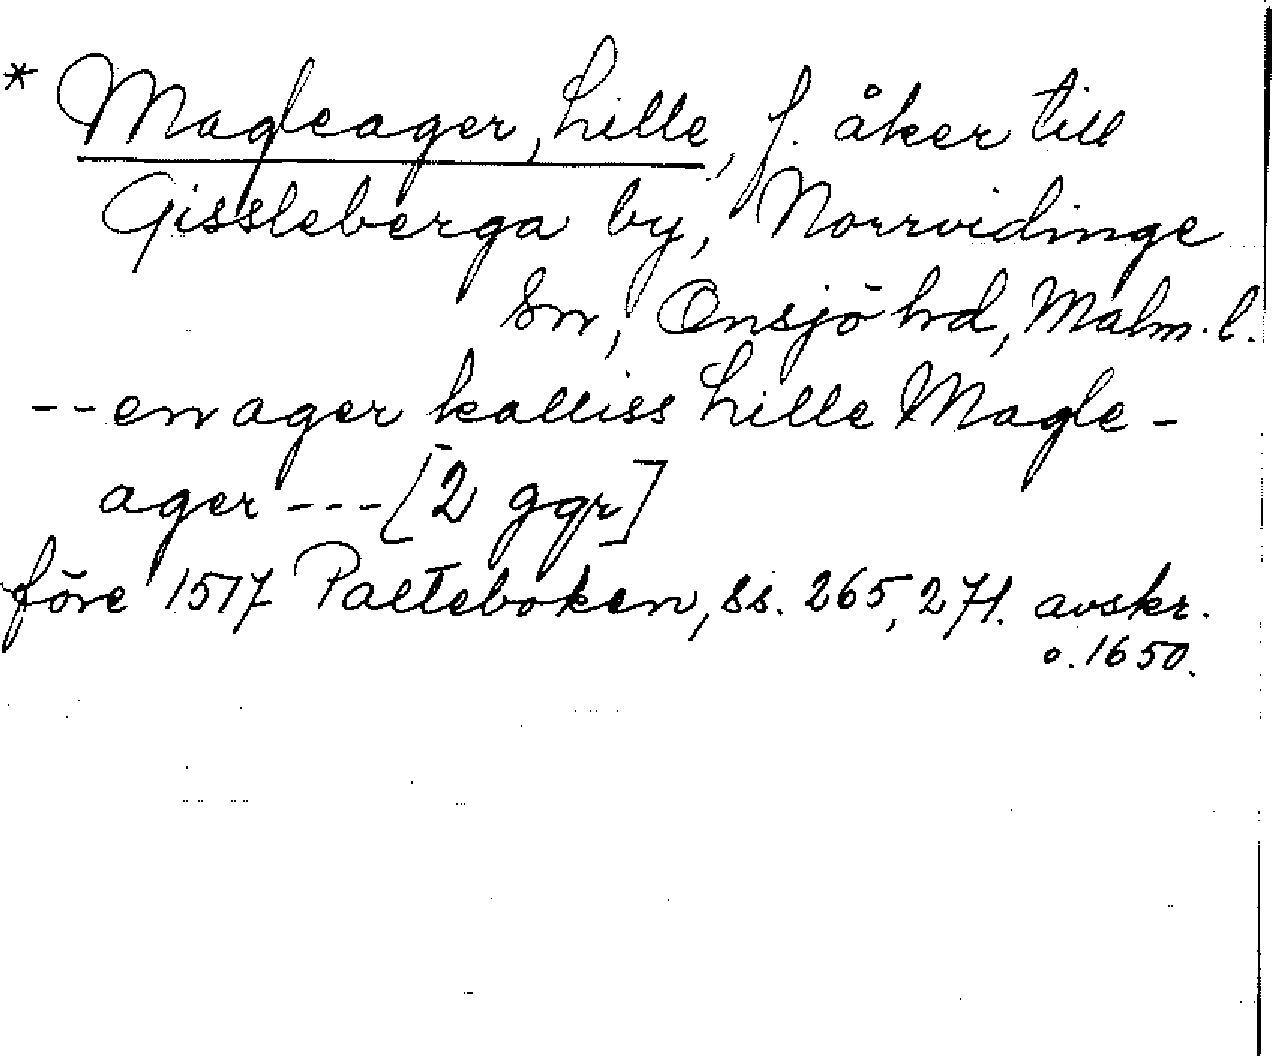 * Magleager, Lille, f. åker till
Gissleberga by, Norrvidinge
sn, Onsjö hd, Malm. l.
-- en ager kalliss Lille Magle-
ager --- [2 ggr]
före 1517 Palteboken, ss. 265, 271. avskr.
o. 1650.